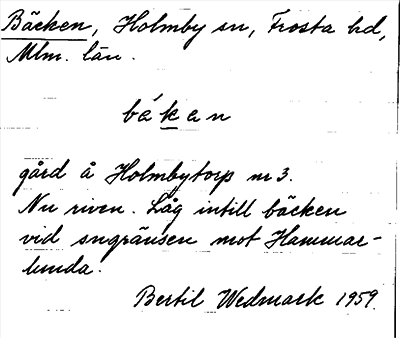 Bäcken, Holmby sn, Frosta hd,
Mlm. län.
bákan
gård å Holmbytorp nr 3.
Nu riven. Låg intill bäcken
vid sngränsen mot Hammar-
lunda.
Bertil Wedmark 1959.